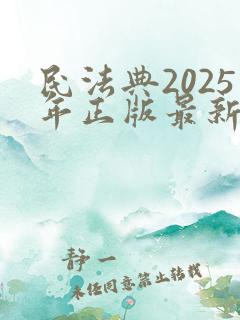 民法典2025
年正版最新
静一
未经同意禁止转载